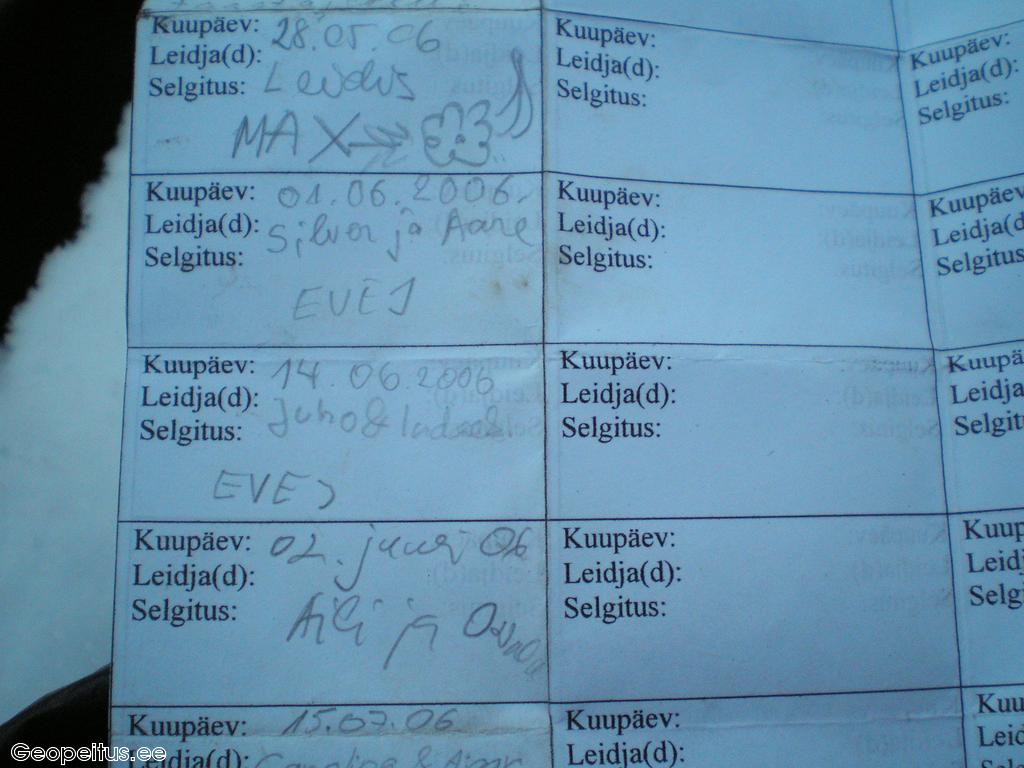 Kuupäev: 28.05.06
Leidja(d):
Selgitus: Leidis
MAX
Kuupäev: 01.06.2006.
Leidja(d): Silver ja Aare
Selgitus:
EVEJ
Kuupäev: 14.06.2006
Leidja(d): Juho &
Selgitus:
EVEJ
Kuupäev: 02. 06
Leidja(d):
Selgitus: Aili ja
Kuupäev: 15.07.06
Leidja(d): &
Kuupäev:
Leidja(d):
Selgitus:
Kuupäev:
Leidja(d):
Selgitus:
Kuupäev:
Leidja(d):
Selgitus:
Kuupäev:
Leidja(d):
Selgitus:
Kuupäev:
Leidja(d):
Kuupäev:
Leidja(d):
Selgitus:
Kuupäev
Leidja(d
Selgitus:
Kuupä
Leidja
Selgitu
Kuup
Leidj
Selg
Kuu
Leid
Geopeitus.ee